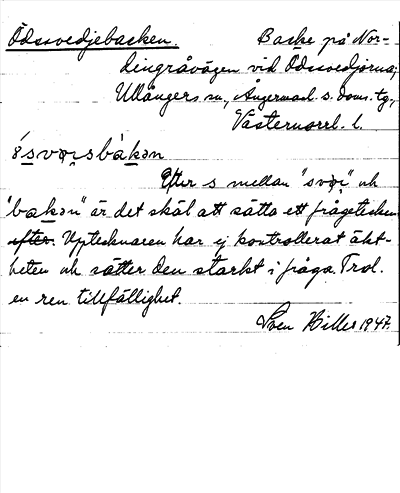 Ödssvedjebacken. Backe på Nor-
dingråvägen vid Ödssvedjorna,
Ullångers sn, Ångermanl. s. doms. tg,
Västernorrl. l.
Efter s mellan "svøi" och
"bakən" är det skäl att sätta ett frågetecken
efter. Upptecknaren har ej kontrollerat äkt-
heten och sätter den starkt i fråga. Trol.
en ren tillfällighet.
Sven Hiller 1947.